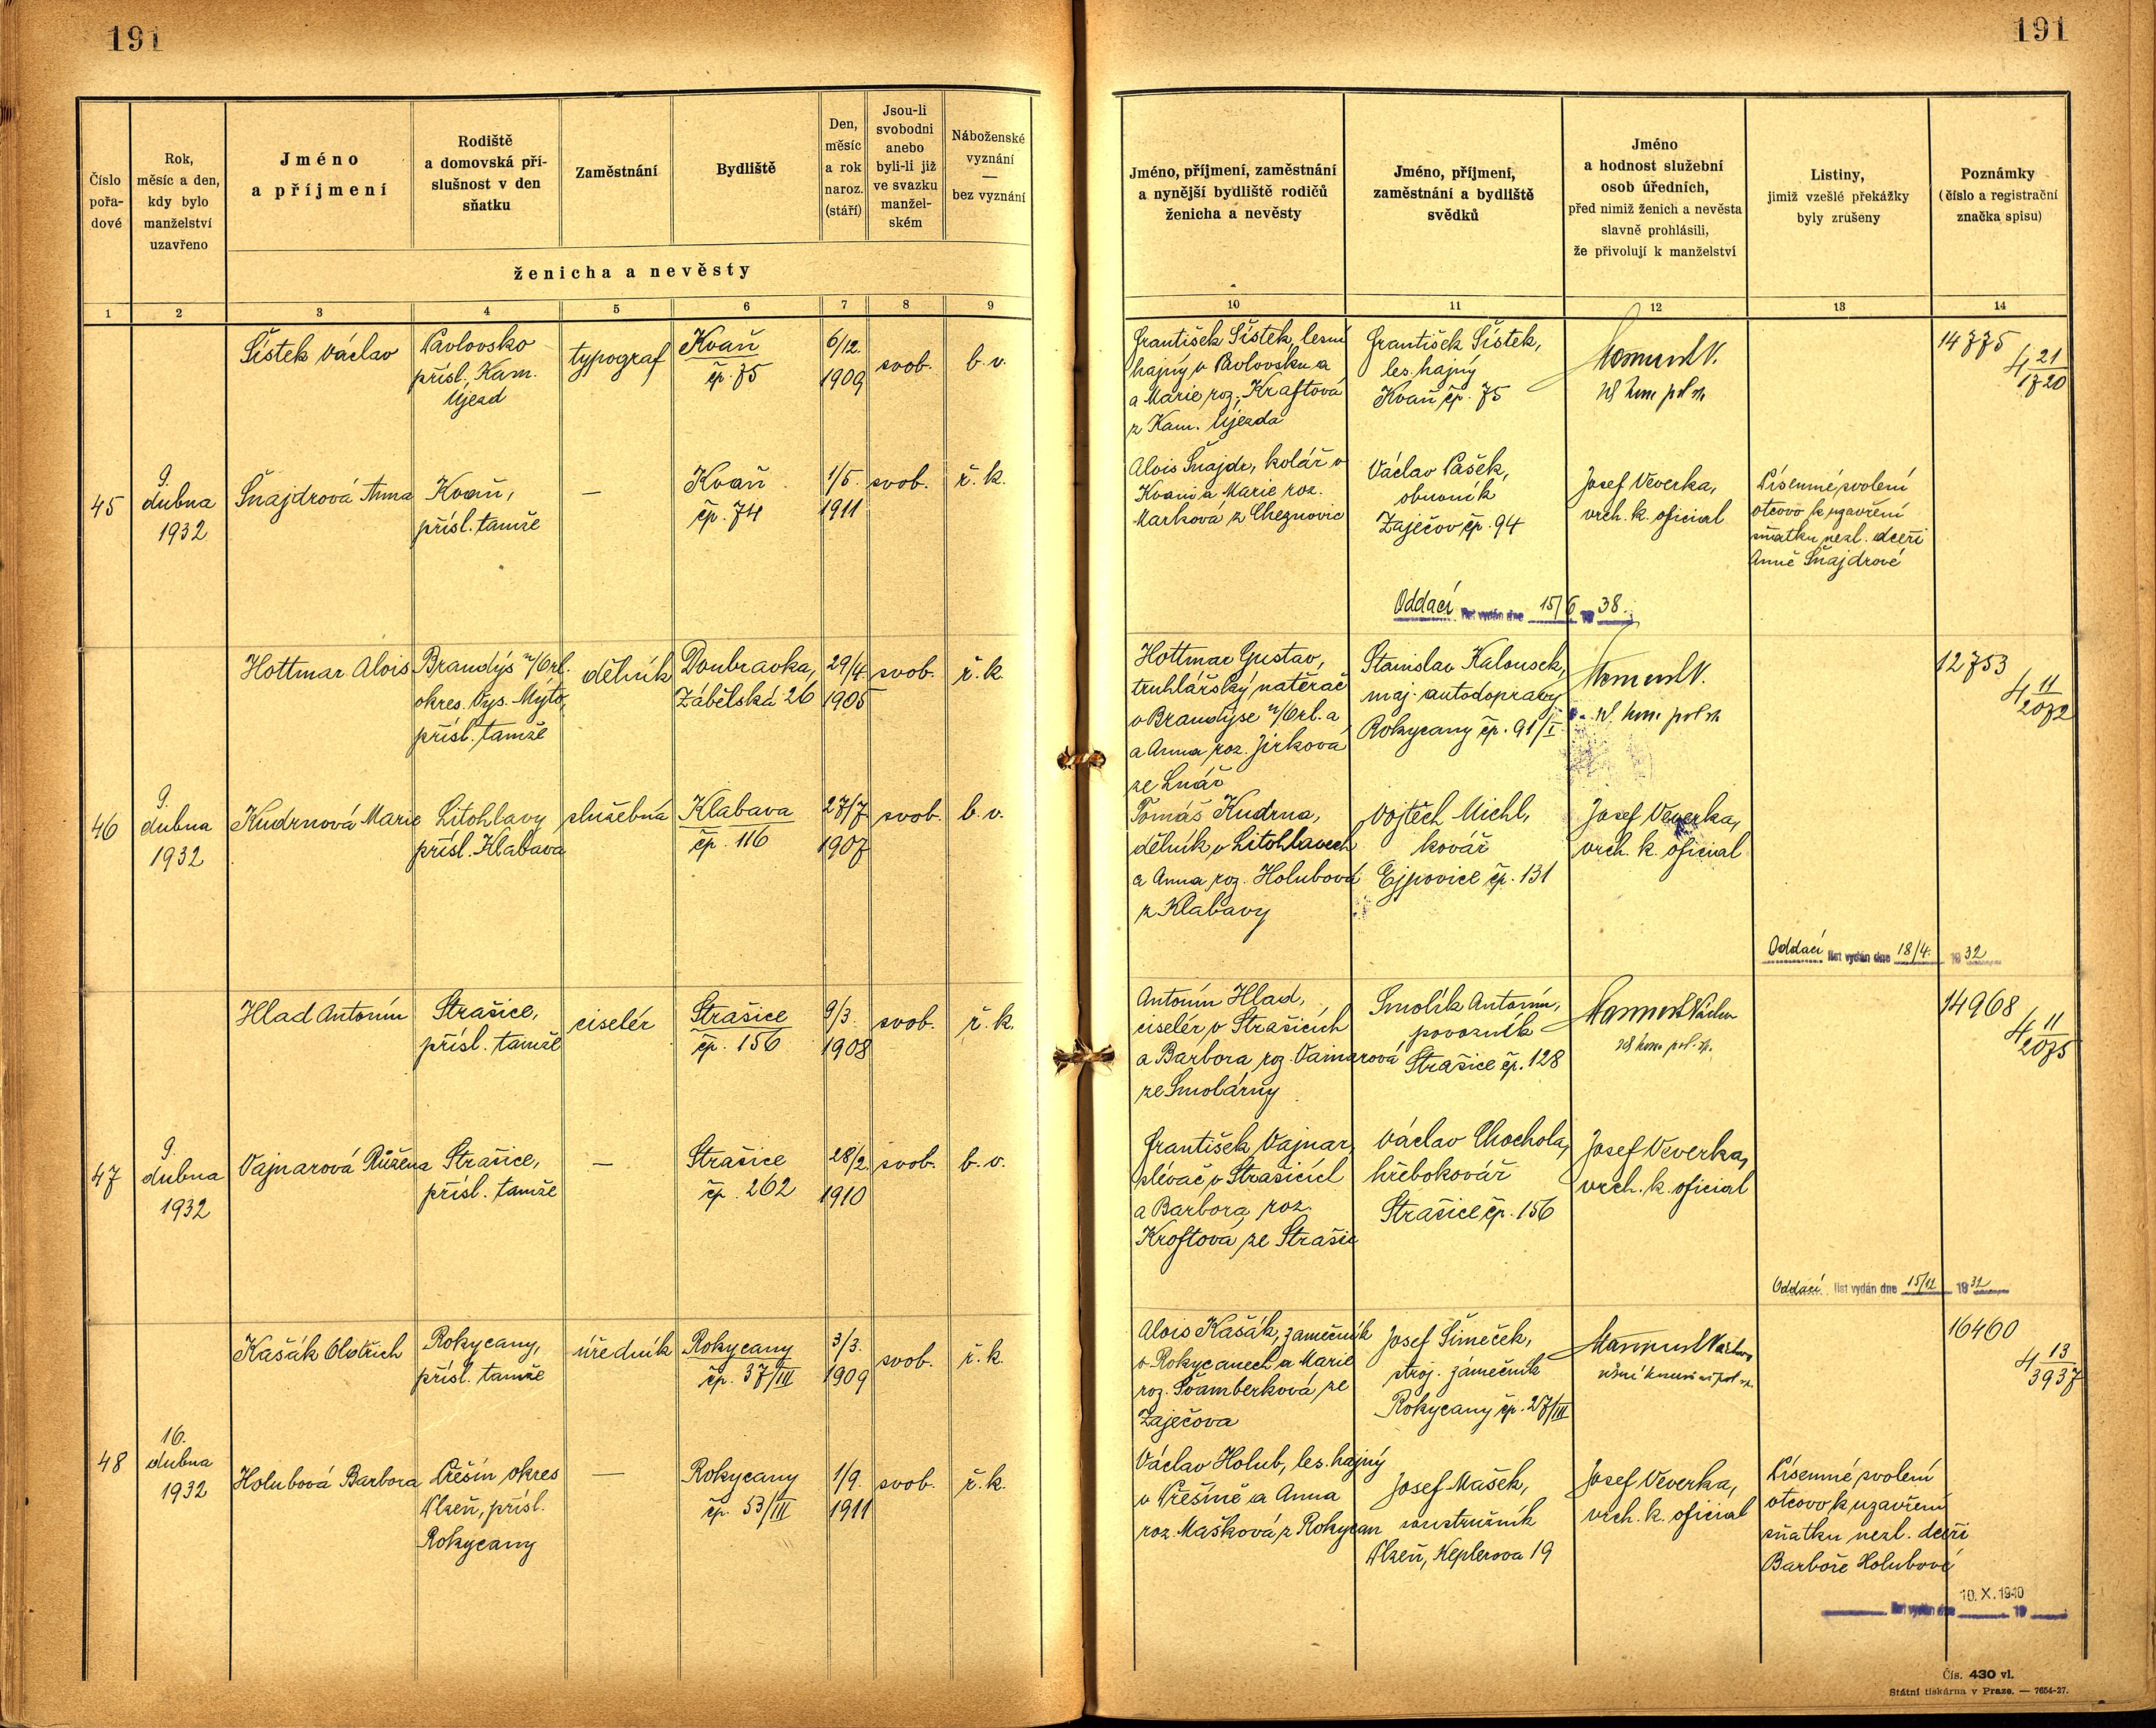 191
191
Číslo
pořa-
dové
Rok,
měsíc a den,
kdy bylo
manželství
uzavřeno
Jméno
a příjmení
Rodiště
a domovská pří-
slušnost v den
sňatku
Zaměstnání
Bydliště
Den,
měsíc
a rok
naroz.
(stáří)
Jsou-li
svobodni
anebo
byli-li již
ve svazku
manžel-
ském
Náboženské
vyznání
—
bez vyznání
ženicha a nevěsty
Jméno, příjmení, zaměstnání
a nynější bydliště rodičů
ženicha a nevěsty
Jméno, příjmení,
zaměstnání a bydliště
svědků
Jméno
a hodnost služební
osob úředních,
před nimiž ženich a nevěsta
slavně prohlásili,
že přivolují k manželství
Listiny,
jimiž vzešlé překážky
byly zrušeny
Poznámky
(číslo a registrační
značka spisu)
1 2 3 4 5 6 7 8 9 10 11 12 13 14
Šístek Václav
Pavlovsko
přísl. Kam.
Újezd
typograf
Kvaň
čp. 75
6/12.
1909
svob.
b. v.
František Šístek, lesní
hajný v Pavlovsku a
a Marie roz. Kraftová
z Kam. Újezda
František Šístek,
les. hajný
Kvaň čp. 75
14775
4 21/1720
45
9.
dubna
1932
Šnajdrová Anna
Kvaň,
přísl. tamže
—
Kvaň
čp. 74
1/5.
1911
svob.
ř. k.
Alois Šnajdr, kolář v
Kvani a Marie roz.
Marková z Cheznovic
Václav Pašek,
obuvník
Zaječov čp. 94
Josef Veverka,
vrch. k. oficial
Písemné svolení
otcovo k uzavření
sňatku nezl. dceři
Anně Šnajdrové
Oddací list vydán dne 15/6 19 38.
Hottmar Alois
Brandýs n/Orl.
okres. Vys. Mýto,
přísl. tamže
dělník
Doubravka,
Zábělská 26
29/4.
1905
svob.
ř. k.
Hottmar Gustav,
truhlářský natěrač
v Brandýse n/Orl. a
a Anna roz. Jirková
ze Lnář
Stanislav Kalousek,
maj. autodopravy
Rokycany čp. 91/I
12753
4 11/2072
46
9.
dubna
1932
Kudrnová Marie
Litohlavy
přísl. Klabava
služebná
Klabava
čp. 116
27/7
1907
svob.
b. v.
Tomáš Kudrna,
dělník v Litohlavech
a Anna roz. Holubová
z Klabavy
Vojtěch Michl,
kovář
Ejpovice čp. 131
Josef Veverka,
vrch. k. oficial
Oddací list vydán dne 18/4. 19 32
Hlad Antonín
Strašice,
přísl. tamže
ciselér
Strašice
čp. 156
9/3.
1908
svob.
ř. k.
Antonín Hlad,
ciselér v Strašicích
a Barbora roz. Vainarová
ze Smolárny
Smolík Antonín,
povozník
Strašice čp. 128
14968
4 11/2075
47
9.
dubna
1932
Vajnarová Růžena
Strašice,
přísl. tamže
—
Strašice
čp. 262
28/2.
1910
svob.
b. v.
František Vajnar,
slévač v Strašicích
a Barbora roz.
Kroftová ze Strašic
Václav Chochola,
hřebokovář
Strašice čp. 156
Josef Veverka,
vrch. k. oficial
Oddací list vydán dne 15/12 19 32
Kašák Oldřich
Rokycany,
přísl. tamže
úředník
Rokycany
čp. 37/III
3/3.
1909
svob.
ř. k.
Alois Kašák, zámečník
v Rokycanech a Marie
roz. Švamberková ze
Zaječova
Josef Šimeček,
stroj. zámečník
Rokycany čp. 27/III
16460
4 13/3937
48
16.
dubna
1932
Holubová Barbora
Dřešín okres
Plzeň, přísl.
Rokycany
—
Rokycany
čp. 53/III
1/9.
1911
svob.
ř. k.
Václav Holub, les. hajný
a Anna
roz. Mašková z Rokycan
Josef Mašek,
soustružník
Plzeň, Keplerova 19
Josef Veverka,
vrch. k. oficial
Písemné svolení
otcovo k uzavření
sňatku nezl. dceři
Barboře Holubové
10. X. 1940
list vydán dne 19
Čís. 430 vl.
Státní tiskárna v Praze. — 7654-27.